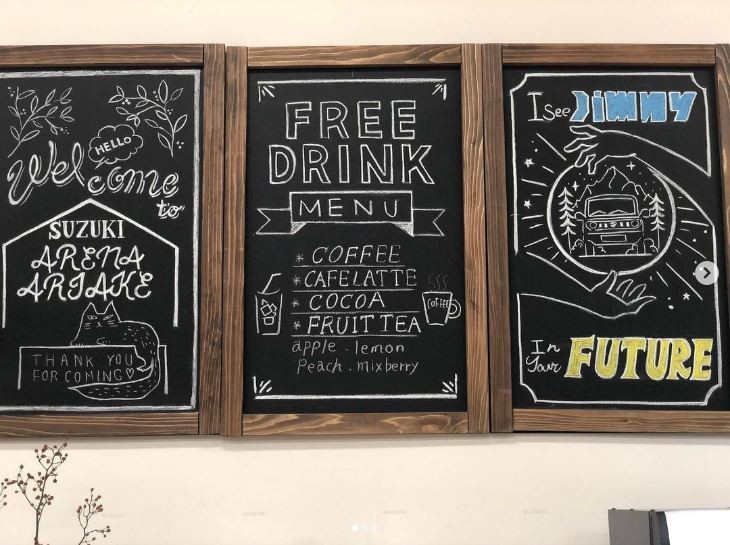 Welcome
HELLO
to
SUZUKI
ARENA
ARIAKE
THANK YOU
FOR COMING♡
FREE
DRINK
MENU
* COFFEE
* CAFELATTE
* COCOA
* FRUIT TEA
apple . lemon
Peach . mixberry
COFFEE
I See JIMNY
In
Your FUTURE